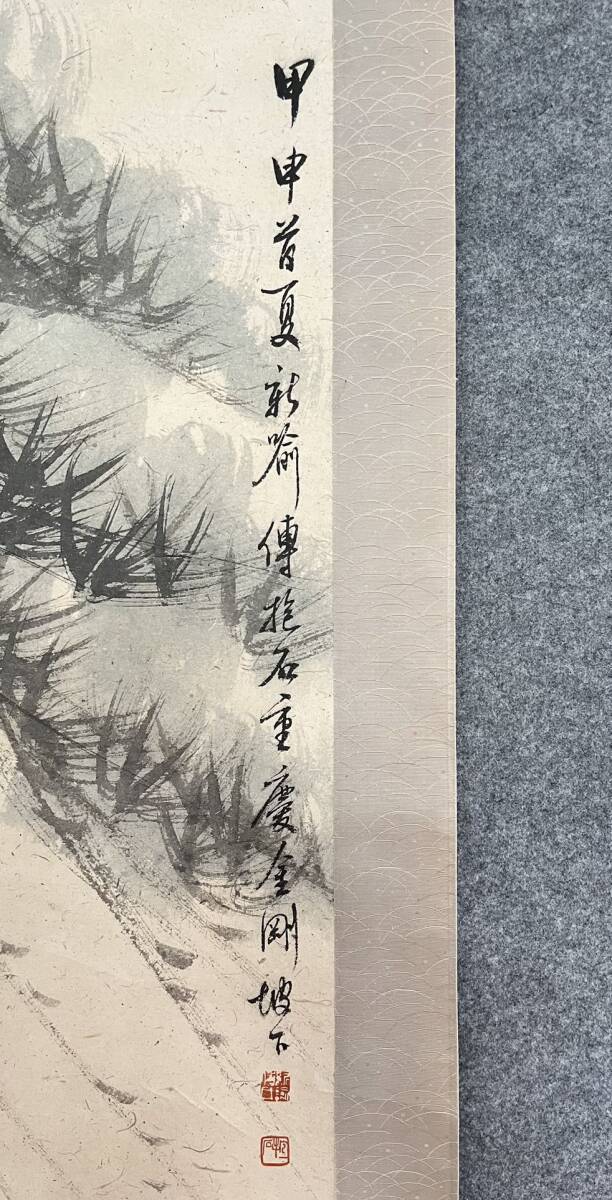 甲申首夏新喻傅抱石重慶金剛坡下